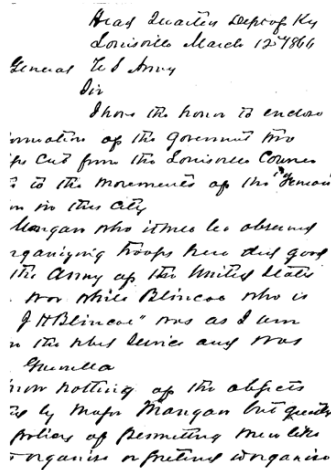 Head Quarters Dept of Ky
Louisville March 12th 1866
General U S Army
Sir
I have the honor to enclose
ormation of the Government two
ps cut from the Louisville Courier
s to the movements of the "Fenian
in this City
Mangan who it will be observed
rganizing troops here did good
the Army of the United States
war while Blincoe who is
J H Blincoe" was as I am
n the rebel service and was
Guerrilla
know nothing of the objects
by Major Mangan but question
policy of permitting men like
organise or pretend to organise